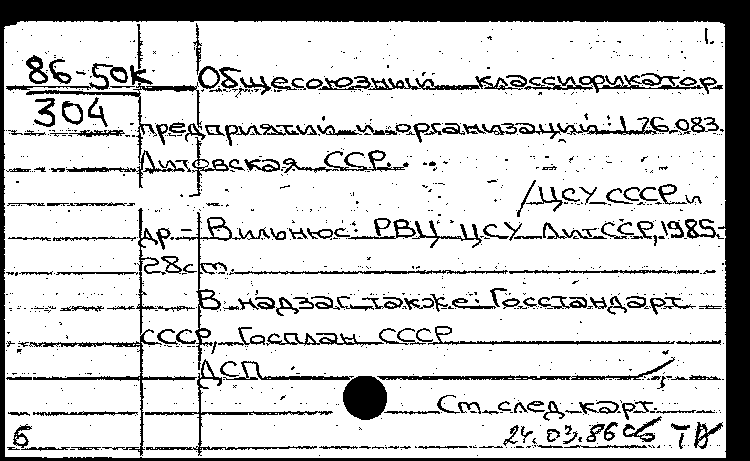 1.
86-50к Общесоюзный классификатор
304
предприятий и организаций: 1 76 083
Литовская ССР. . .
/ЦСУ СССР и
др. - Вильнюс: РВЦ ЦСУ ЛитССР, 1985.-
28 см.
В надзаг. также: Госстандарт
СССР, Госплан СССР
ДСП
См. след. карт.
б 24.03.86